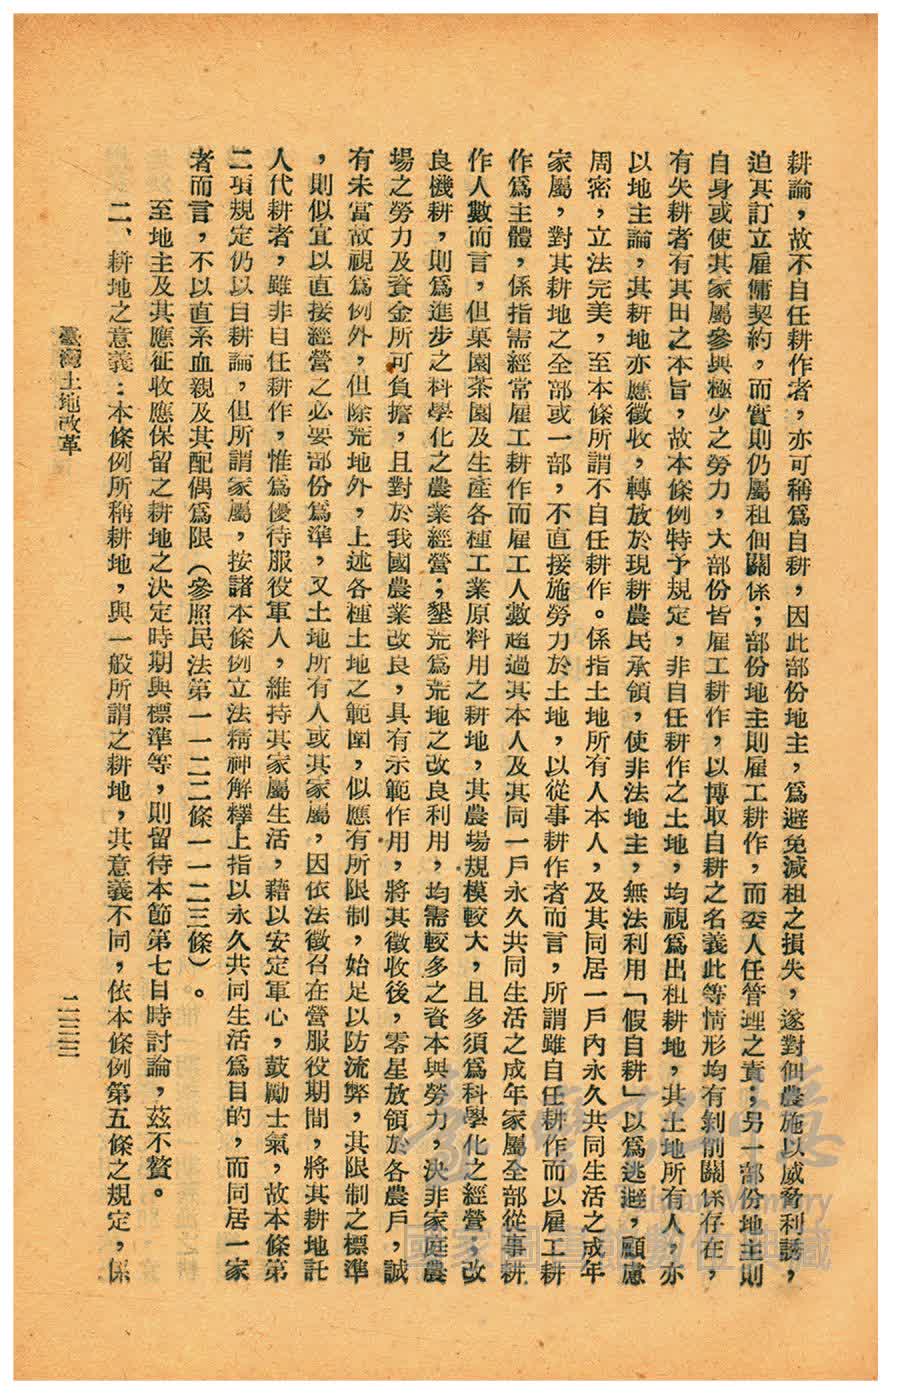 耕論，故不自任耕作者，亦可稱爲自耕，因此部份地主，爲避免減租之損失，遂對佃農施以威脅利誘，
迫其訂立雇傭契約，而實則仍屬租佃關係；部份地主則雇工耕作，而委人任管理之責；另一部份地主則
自身或使其家屬參與極少之勞力，大部份皆雇工耕作，以博取自耕之名義此等情形均有剝削關係存在，
有失耕者有其田之本旨，故本條例特予規定，非自任耕作之土地，均視爲出租耕地，其土地所有人，亦
以地主論，其耕地亦應徵收，轉放於現耕農民承領，使非法地主，無法利用「假自耕」以爲逃避，顧慮
周密，立法完美，至本條所謂不自任耕作。係指土地所有人本人，及其同居一戶內永久共同生活之成年
家屬，對其耕地之全部或一部，不直接施勞力於土地，以從事耕作者而言，所謂雖自任耕作而以雇工耕
作爲主體，係指需經常雇工耕作而雇工人數超過其本人及其同一戶永久共同生活之成年家屬全部從事耕
作人數而言，但菓園茶園及生產各種工業原料用之耕地，其農場規模較大，且多須爲科學化之經營；改
良機耕，則爲進步之科學化之農業經營；墾荒爲荒地之改良利用，均需較多之資本與勞力，決非家庭農
場之勞力及資金所可負擔，且對於我國農業改良，具有示範作用，將其徵收後，零星放領於各農戶，誠
有未當故視爲例外，但除荒地外，上述各種土地之範圍，似應有所限制，始足以防流弊，其限制之標準
，則似宜以直接經營之必要部份爲準，又土地所有人或其家屬，因依法徵召在營服役期間，將其耕地託
人代耕者，雖非自任耕作，惟爲優待服役軍人，維持其家屬生活，藉以安定軍心，鼓勵士氣，故本條第
二項規定仍以自耕論，但所謂家屬，按諸本條例立法精神解釋上指以永久共同生活爲目的，而同居一家
者而言，不以直系血親及其配偶爲限（參照民法第一一二二條一一二三條）。
至地主及其應征收應保留之耕地之決定時期與標準等，則留待本節第七目時討論，茲不贅。
二、耕地之意義：本條例所稱耕地，與一般所謂之耕地，其意義不同，依本條例第五條之規定，係
臺灣土地改革
二三三
臺灣記憶
Taiwan Memory
國家圖書館數位典藏